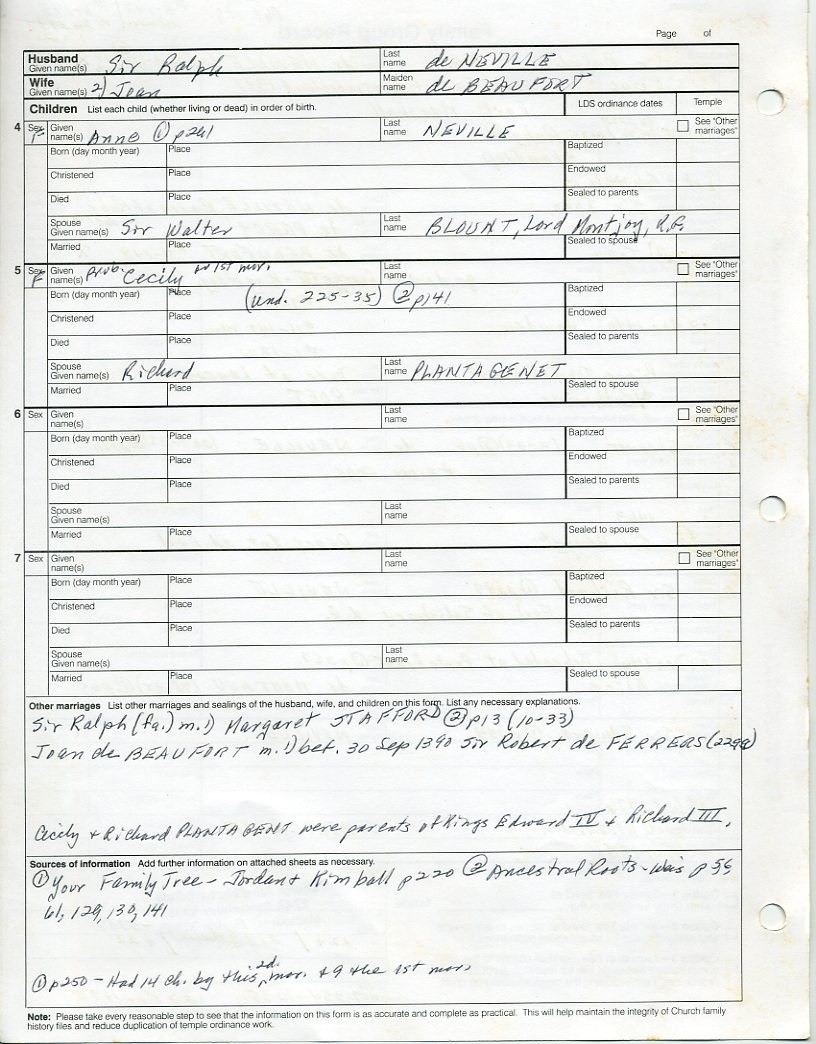 Page of
Husband Given name(s) Sir Ralph Last name de NEVILLE
Wife Given name(s) 2) Joan Maiden name de BEAUFORT
Children List each child (whether living or dead) in order of birth. LDS ordinance dates Temple
4 Sex F Given name(s) Anne ① p241 Last name NEVILLE See "Other marriages"
Born (day month year) Place Baptized
Christened Place Endowed
Died Place Sealed to parents
Spouse Given name(s) Sir Walter Last name BLOUNT, Lord Montjoy, K.G.
Married Place Sealed to spouse
5 Sex F Given name(s) prob. Cecily 1st mar. Last name See "Other marriages"
Born (day month year) Place (und. 225-35) ② p141 Baptized
Christened Place Endowed
Died Place Sealed to parents
Spouse Given name(s) Richard Last name PLANTAGENET
Married Place Sealed to spouse
6 Sex Given name(s) Last name See "Other marriages"
Born (day month year) Place Baptized
Christened Place Endowed
Died Place Sealed to parents
Spouse Given name(s) Last name
Married Place Sealed to spouse
7 Sex Given name(s) Last name See "Other marriages"
Born (day month year) Place Baptized
Christened Place Endowed
Died Place Sealed to parents
Spouse Given name(s) Last name
Married Place Sealed to spouse
Other marriages List other marriages and sealings of the husband, wife, and children on this form. List any necessary explanations.
Sir Ralph (fa.) m. 1) Margaret STAFFORD ② p13 (10-33)
Joan de BEAUFORT m. 1) bef. 30 Sep 1390 Sir Robert de FERRERS
Cecily & Richard PLANTAGENT were parents of Kings Edward IV & Richard III.
Sources of information Add further information on attached sheets as necessary.
① Your Family Tree - Jordan & Kimball p220 ② Ancestral Roots - Weis p 56
61, 129, 130, 141
① p250 - Had 14 ch. by this 2d. mar. & 9 the 1st mar.
Note: Please take every reasonable step to see that the information on this form is as accurate and complete as practical. This will help maintain the integrity of Church family
history files and reduce duplication of temple ordinance work.